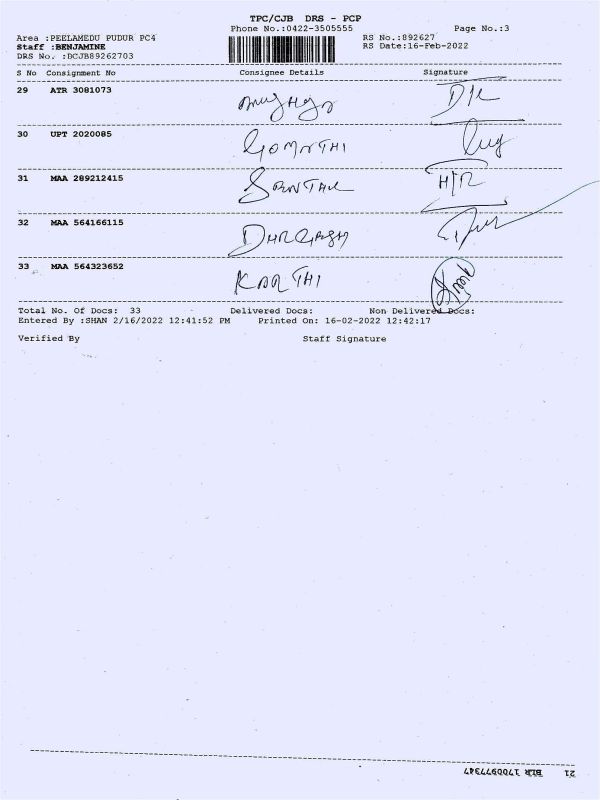 TPC/CJB DRS - PCP
Phone No.:0422-3505555 Page No.:3
Area :PEELAMEDU PUDUR PC4 RS No.:892627
Staff :BENJAMINE RS Date:16-Feb-2022
DRS No. :BCJB89262703
S No Consignment No Consignee Details Signature
29 ATR 3081073
30 UPT 2020085 GOMATHI
31 MAA 289212415
32 MAA 564166115
33 MAA 564323652 KARTHI
Total No. Of Docs: 33 Delivered Docs: Non Delivered Docs:
Entered By :SHAN 2/16/2022 12:41:52 PM Printed On: 16-02-2022 12:42:17
Verified By Staff Signature
21 BLR 1700977347